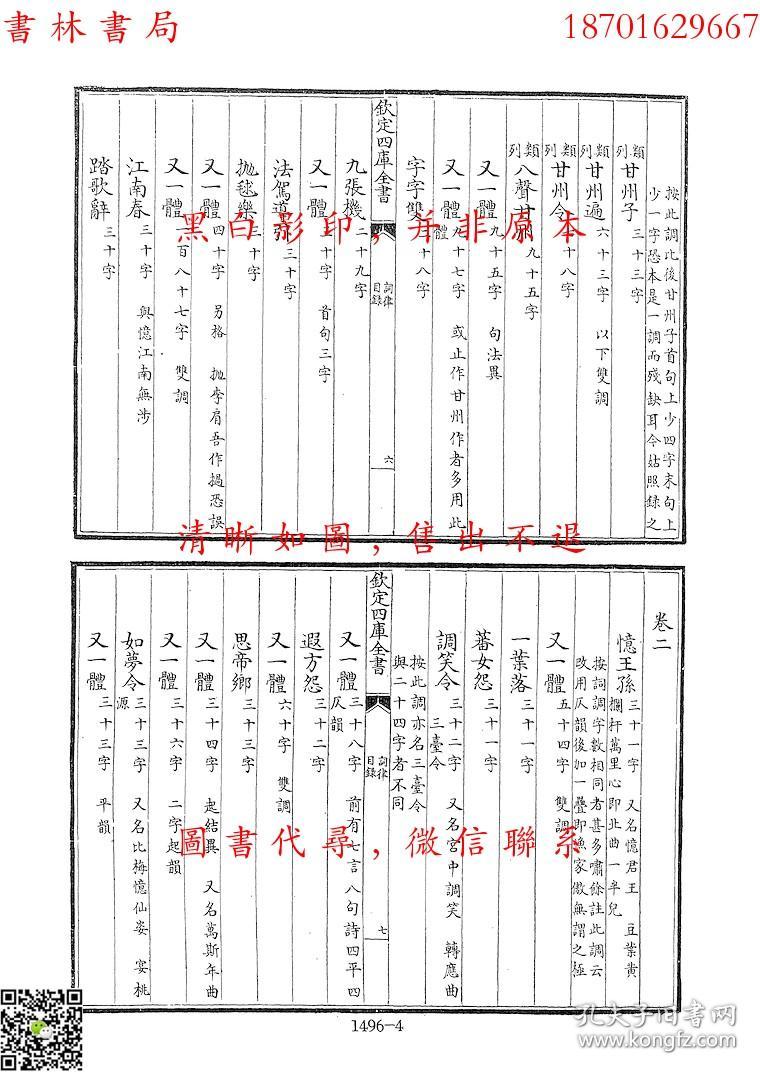 書林書局
18701629667
按此調比後甘州子首句上少四字末句上
少一字恐本是一調而殘缺耳今姑照錄之
類列 甘州子 三十三字
類列 甘州遍 六十三字 以下雙調
類列 甘州令 十八字
類列 八聲甘州 九十五字
又一體 九十五字 句法異
又一體 九十七字 或止作甘州作者多用此
體
字字雙 二十八字
欽定四庫全書
詞律
目錄
六
九張機 二十九字
又一體 三十字 首句三字
法駕道引 三十字
拋毬樂 三十字
又一體 四十字 另格 拋李肩吾作搗恐誤
又一體 一百八十七字 雙調
江南春 三十字 與憶江南無涉
踏歌辭 三十字
黑白影印，并非原本
清晰如圖，售出不退
卷二
憶王孫 三十一字 又名憶君王 豆葉黃
欄杆萬里心即北曲一半兒
按詞調字數相同者甚多嘯餘註此調云
改用仄韻後加一疊即漁家傲無謂之極
又一體 五十四字 雙調
一葉落 三十一字
蕃女怨 三十一字
調笑令 三十二字 又名宮中調笑 轉應曲
三臺令
按此調亦名三臺令
與二十四字者不同
欽定四庫全書
詞律
目錄
七
又一體 三十八字 前有七言八句詩四平四
仄韻
遐方怨 三十二字
又一體 六十字 雙調
思帝鄉 三十三字
又一體 三十四字 起結異 又名萬斯年曲
又一體 三十六字 二字起韻
如夢令 三十三字 又名比梅憶仙姿 宴桃
源
又一體 三十三字 平韻
圖書代尋，微信聯系
1496-4
孔夫子旧书网
kongfz.com